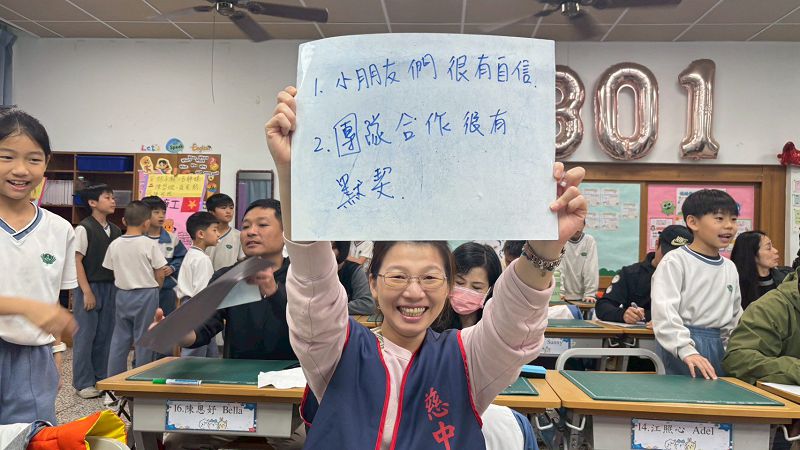 1. 小朋友們 很有自信.
2. 團隊合作很有
默契.
801
Let's Speak English
慈中
Sunny
16.陳恩妤 Bella
14.江照心 Adel